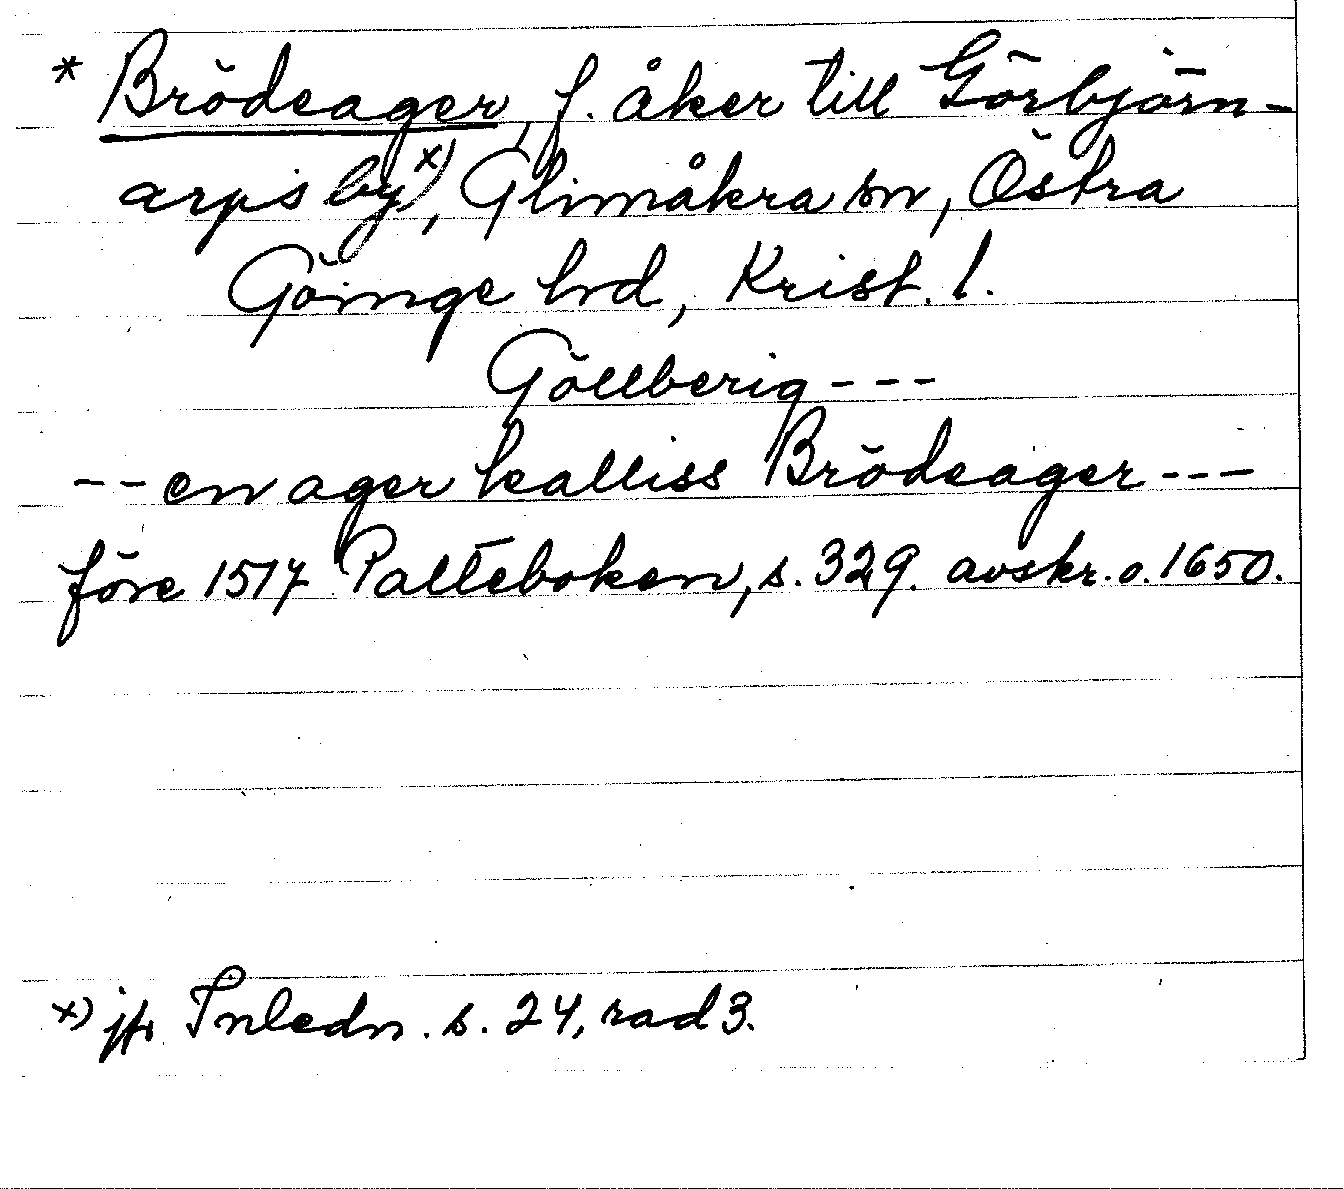 * Brödeager, f. åker till Görbjörn-
arps by x), Glimåkra sn, Östra
Göinge hd, Krist. l.
Göllberig ---
-- en ager kalliss Brödeager ---
före 1517 Palteboken, s. 329. avskr. o. 1650.
x) jfr Inledn. s. 24, rad 3.